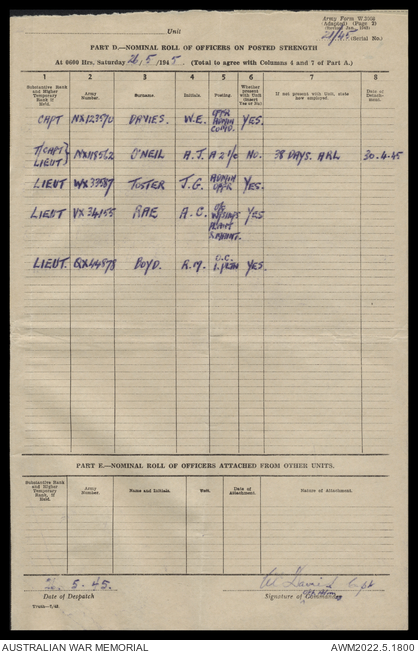 Army Form W.3008
(Adapted) (Page 2)
21/45 (Serial No.)
Unit
PART D.—NOMINAL ROLL OF OFFICERS ON POSTED STRENGTH
At 0600 Hrs, Saturday 26/5/1945. (Total to agree with Columns 4 and 7 of Part A.)
1 2 3 4 5 6 7 8
Substantive Rank and Higher Temporary Rank if Held. Army Number. Surname. Initials. Posting. Whether present with Unit (Insert Yes or No). If not present with Unit, state how employed. Date of Detachment.
CAPT NX123570 DAVIES. W.E. OFFR ADMIN COMD. YES.
T/CAPT LIEUT} NX118562 O'NEIL A.J. A 2 i/c NO. 38 DAYS. ARL 30.4.45
LIEUT WX33587 J.G. ADMIN OFFR YES.
LIEUT VX34155 RAE A.C. O/C YES
LIEUT. QX44878 BOYD. R.M. O.C. YES.
PART E.—NOMINAL ROLL OF OFFICERS ATTACHED FROM OTHER UNITS.
Substantive Rank and Higher Temporary Rank, if Held. Army Number. Name and Initials. Unit. Date of Attachment. Nature of Attachment.
5.45. Capt
Date of Despatch Signature of
AUSTRALIAN WAR MEMORIAL AWM2022.5.1800